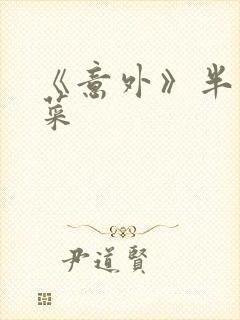 《意外》半
菜
尹道賢